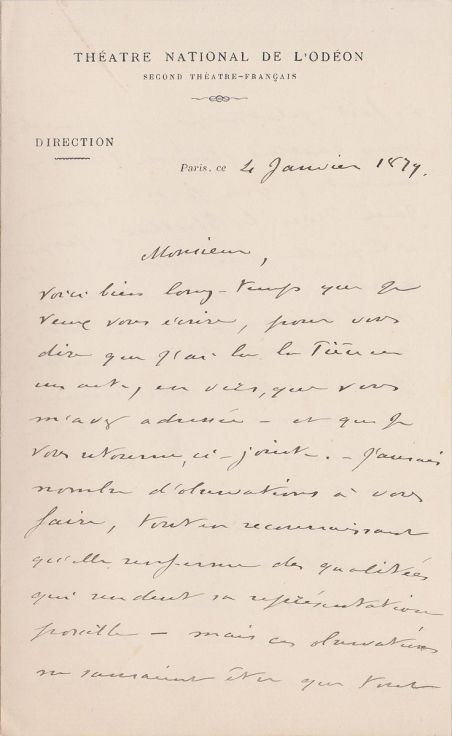 THÉATRE NATIONAL DE L'ODÉON
SECOND THÉATRE-FRANÇAIS
DIRECTION
Paris, ce 4 Janvier 1879.
Monsieur,
Voici bien long-temps que je
veux vous écrire, pour vous
dire que j'ai lu la Pièce en
un acte, en vers, que vous
m'avez adressée — et que je
vous retourne, ci-jointe. — J'aurais
nombre d'observations à vous
faire, tout en reconnaissant
qu'elle renferme des qualitées
qui rendent sa représentation
possible — mais ces observations
ne sauraient être que tout